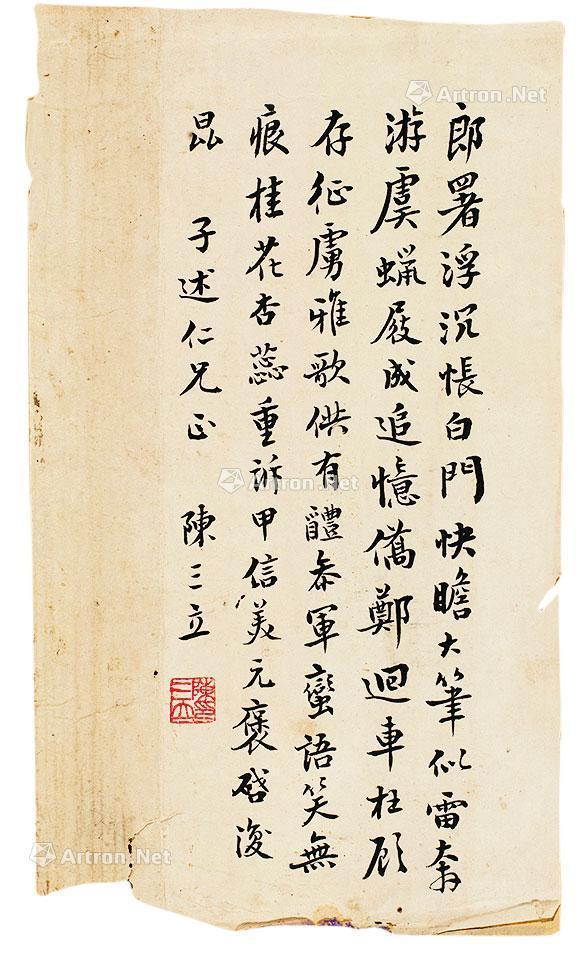 郎署浮沉悵白門快瞻大筆似雷奔
游虞蠟屐成追憶僑鄭迴車枉顧
存征虜雅歌供有醴參軍蠻語笑無
痕桂花杏蕊重訴甲信美元褒啟後
昆 子述仁兄正 陳三立
陳印三立
Artron.Net
Artron.Net
Artron.Net